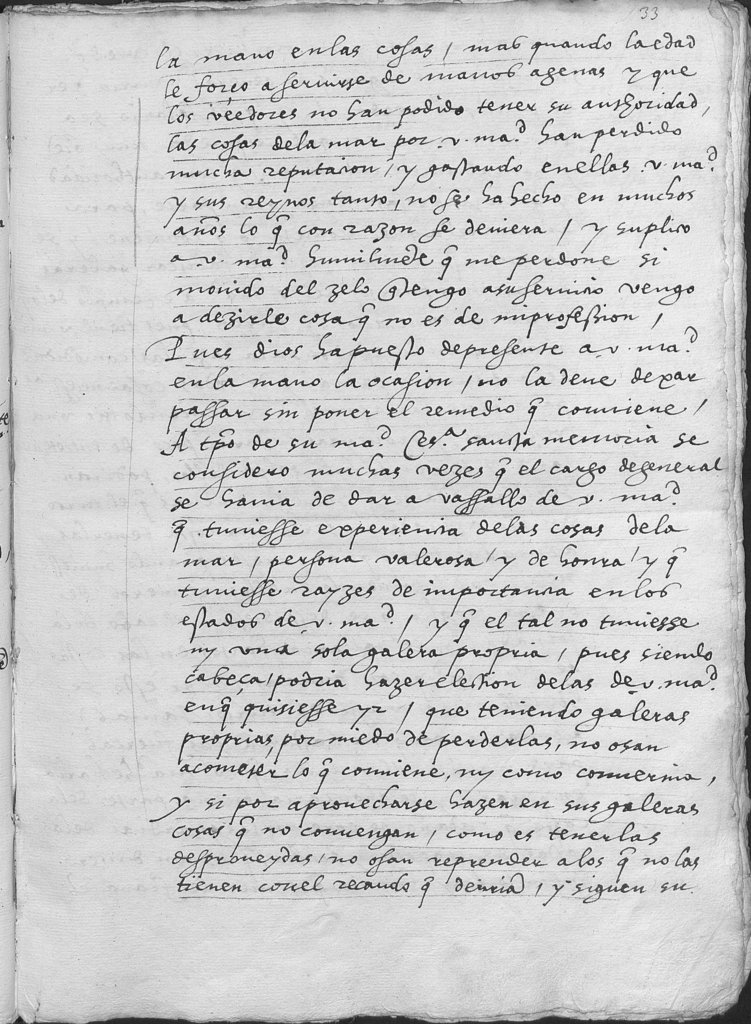 33
la mano en las cosas / mas quando la edad
le forço a seruirse de manos agenas y que
los veedores no han podido tener su authoridad,
las cosas dela mar por .v. ma.d han perdido
mucha reputacion / y gastando en ellas .v. ma.d
y sus reynos tanto, no se ha hecho en muchos
años lo q̃ con razon se deuiera / y suplico
a .v. ma.d humilmẽte q̃ me perdone si
mouido del zelo q̃ tengo a su seruicio vengo
a dezirle cosa q̃ no es de mi profession,
Pues dios ha puesto de presente a .v. ma.d
en la mano la ocasion / no la deue dexar
passar sin poner el remedio q̃ conuiene,
A tp̃o de su ma.d Ces.a sancta memoria se
considero muchas vezes q̃ el cargo de general
se hauia de dar a vassallo de .v. ma.d
q̃ tuuiesse experiencia delas cosas dela
mar, persona valerosa / y de honra / y q̃
tuuiesse rayzes de importancia en los
estados de .v. ma.d / y q̃ el tal no tuuiesse
ny vna sola galera propria, pues siendo
cabeça / podria hazer election delas de .v. ma.d
en q̃ quisiesse yr / que teniendo galeras
proprias, por miedo de perderlas, no osan
acometer lo q̃ conuiene, ny como conuernia,
y si por aprouecharse hazen en sus galeras
cosas q̃ no conuengan, como es tenerlas
desproueydas, no osan reprender a los q̃ no las
tienen con el recaudo q̃ deuria / y siguen su